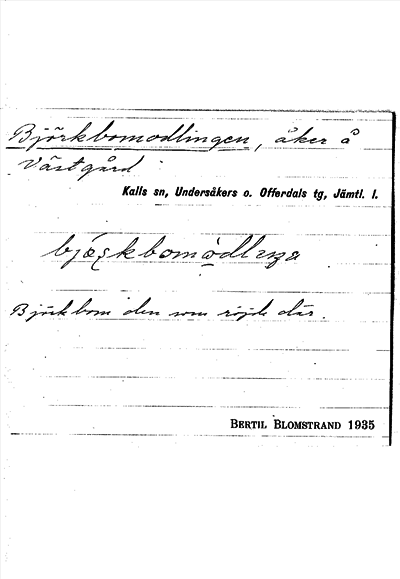 Björkbomodlingen, åker å
Västgård
Kalls sn, Undersåkers o. Offerdals tg, Jämtl. l.
Björkbom den som röjde där.
BERTIL BLOMSTRAND 1935